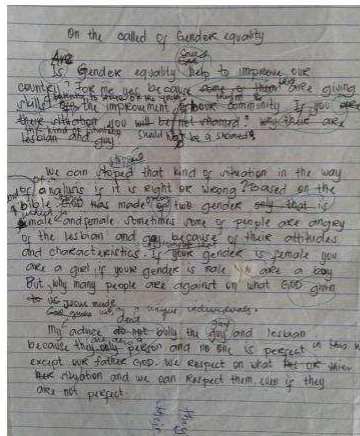 On the called of Gender equality
Is Gender equality help to improve our
country? For me yes because some of them are giving
skilled the improvement of community If you are
their situation you will be not shamed? why there are
this kind of should not be a shamed?
lesbian and guy
stoped
We can stoped that kind of situation in the way
of analysis if it is right or wrong? Based on the
bible GOD has made of two gender only that is
male and female sometimes some of people are angry
of the lesbian and gay because of their attitudes
and characteristics. If your gender is female you
are a girl if your gender is male you are a boy
But why many people are against on what GOD given
to us Jesus made
God unique individuals.
My advice do not bully the guy and lesbian
because they only person and no one is perfect in this
except our father GOD. We respect on what or thier
situation and we can respect them. even if they
are not perfect.